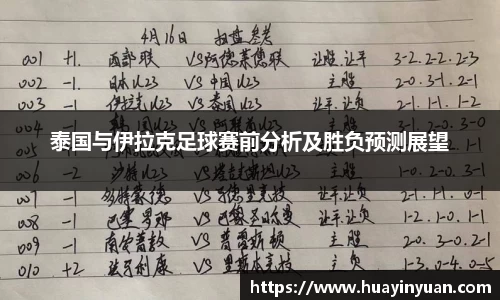 4月16日 扫盘参考
001 +1. 西部联 VS阿德莱德联 让胜.让平 3-2.2-2.2-3
002 -1. 日本U23 VS中国U23 主胜 2-0.3-1.2-1
003 -1 伊拉克U23 VS泰国U23 让平.让负 2-1.1-1.1-2
004 -1
泰国与伊拉克足球赛前分析及胜负预测展望
005
006 -2 沙特U23 VS塔吉克斯坦U23 主胜
007 -1 多特蒙德 VS马德里竞技 让平.让负
008 -1 巴塞罗那 VS 让平.让负 1-2.1-0.1-1
009 -1 南安普敦 VS 普雷斯顿 主胜 2-0.3-0.2-1
010 +2 法马利康 VS 里斯本竞技 主负 1-3.0-4.0-5
https://www.huayinyuan.com